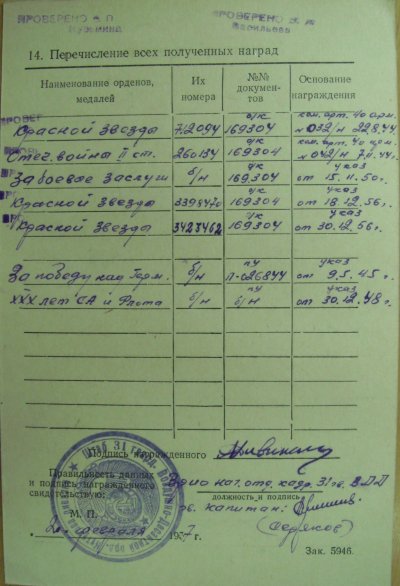 ПРОВЕРЕНО
Кузьмина
ПРОВЕРЕНО
Васильева
14. Перечисление всех полученных наград
Наименование орденов, медалей
Их номера
№№ документов
Основание награждения
Красной Звезды 712094 о/к 169304 ком. арт. 40 арм. №032/н 22.8.44
Отеч. войны II ст. 260134 о/к 169304 №042/н 7.11.44г.
За боевые заслуги б/н о/к 169304 указ от 15.11.50г.
Красной Звезды о/к 169304 указ от 18.12.56г.
Красной Звезды 3423462 о/к 169304 указ от 30.12.56г.
За победу над Герм. б/н п/у П-026844 указ от 9.5.45г.
XXX лет СА и Флота б/н п/у б/н указ от 30.12.48г.
Подпись награжденного
Правильность данных
и подпись награжденного
свидетельствую:
Врио нач. отд. кадр. 31 гв. ВДД
должность и подпись
гв. капитан:
М. П.
февраля
Зак. 5946.